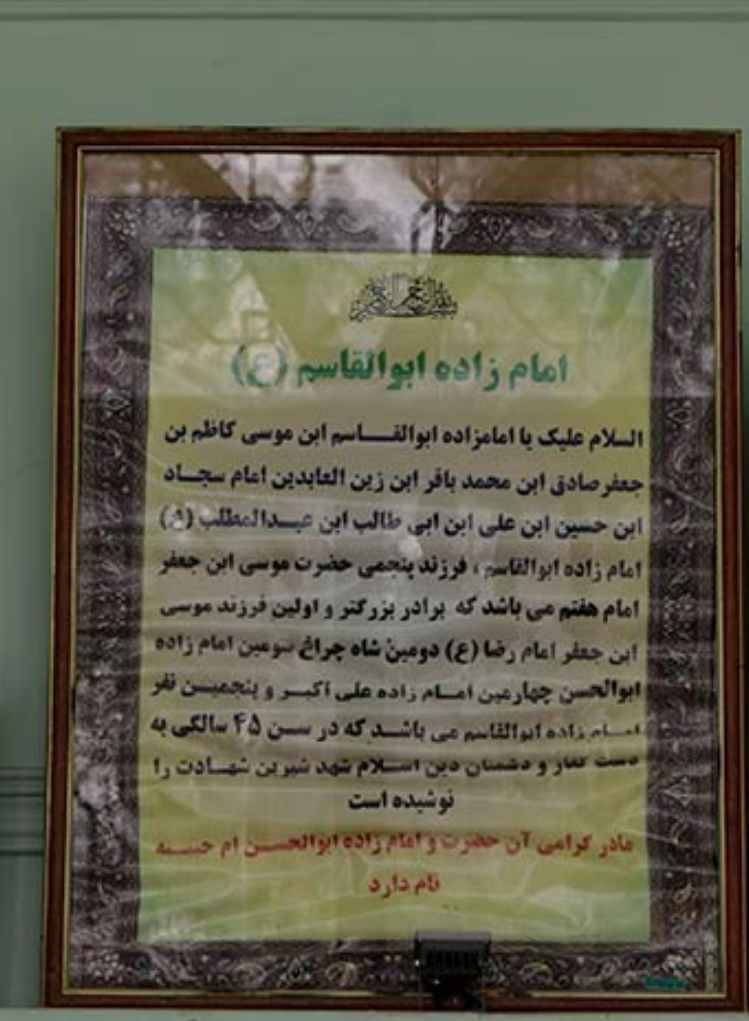 بسم الله الرحمن الرحیم
امام زاده ابوالقاسم (ع)
السلام علیک یا امامزاده ابوالقـــاسم ابن موسی کاظم بن
جعفر صادق ابن محمد باقر ابن زین العابدین امام سجـــاد
ابن حسین ابن علی ابن ابی طالب ابن عبـــدالمطلب (ع)
امام زاده ابوالقاسم ، فرزند پنجمی حضرت موسی ابن جعفر
امام هفتم می باشد که برادر بزرگتر و اولین فرزند موسی
ابن جعفر امام رضا (ع) دومین شاه چراغ سومین امام زاده
ابوالحسن چهارمین امـــام زاده علی اکبـــر و پنجمیـــن نفر
امـــام زاده ابوالقاسم می باشـــد که در ســـن ۴۵ سالگی به
دست کفار و دشمنان دین اســـلام شهد شیرین شهـــادت را
نوشیده است
مادر گرامی آن حضرت و امام زاده ابوالحســـن ام حبیـــبه
نام دارد